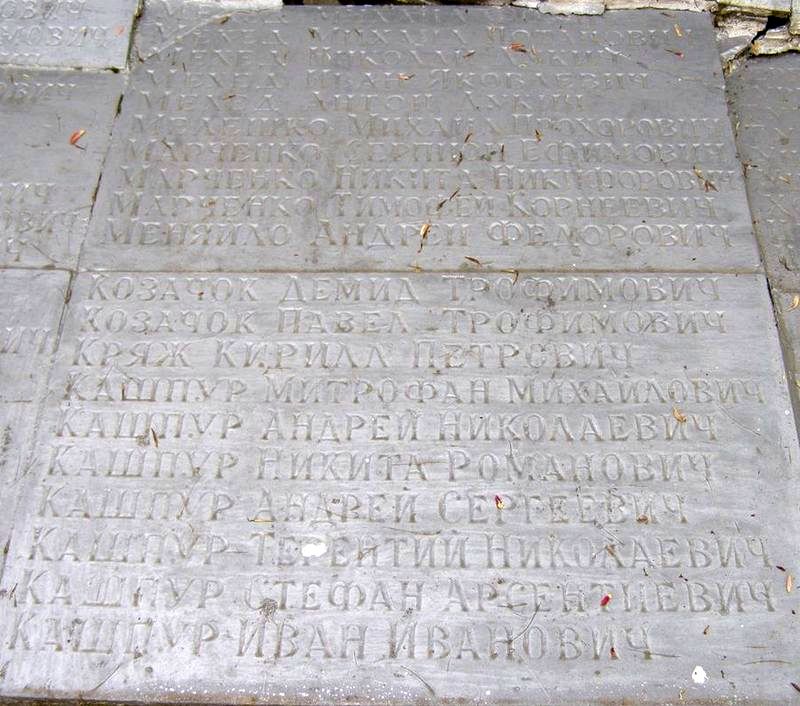 ОВИЧ
ЕВИЧ
МЕХЕД МИХАИЛ
МЕХЕД НИКОЛАЙ ЛУКИЧ
МЕХЕД ИВАН ЯКОВЛЕВИЧ
МЕХЕД АНТОН ЛУКИЧ
МЕЛЕШКО МИХАИЛ ПРОХОРОВИЧ
МАРЧЕНКО СЕРГИЙ ЕФИМОВИЧ
МАРЧЕНКО НИКИТА НИКИФОРОВИЧ
МАРЧЕНКО ТИМОФЕЙ КОРНЕЕВИЧ
МЕНЯЙЛО АНДРЕЙ ФЕДОРОВИЧ
КОЗАЧОК ДЕМИД ТРОФИМОВИЧ
КОЗАЧОК ПАВЕЛ ТРОФИМОВИЧ
КРЯЖ КИРИЛЛ ПЕТРОВИЧ
КАШПУР МИТРОФАН МИХАЙЛОВИЧ
КАШПУР АНДРЕЙ НИКОЛАЕВИЧ
КАШПУР НИКИТА РОМАНОВИЧ
КАШПУР АНДРЕЙ СЕРГЕЕВИЧ
КАШПУР ТЕРЕНТИЙ НИКОЛАЕВИЧ
КАШПУР СТЕФАН АРСЕНТИЕВИЧ
КАШПУР ИВАН ИВАНОВИЧ